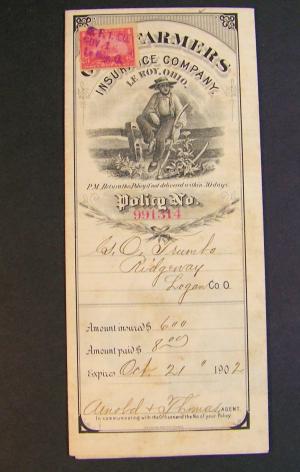 FARMERS
INSURANCE COMPANY,
LE ROY, OHIO.
P.M. Return this Policy if not delivered within 30 days.
Policy No.
991314
Ridgeway
Logan Co. O.
Amount insured $ 600
Amount paid $ 8.00
Expires Oct. 21 " 1902
Arnold & Thomas AGENT.
In communicating with the Office send the No. of your Policy